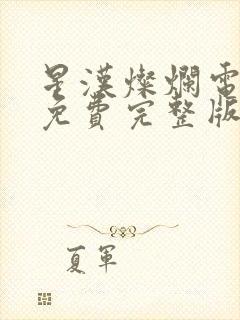 星漢燦爛電
免費完整版
夏軍